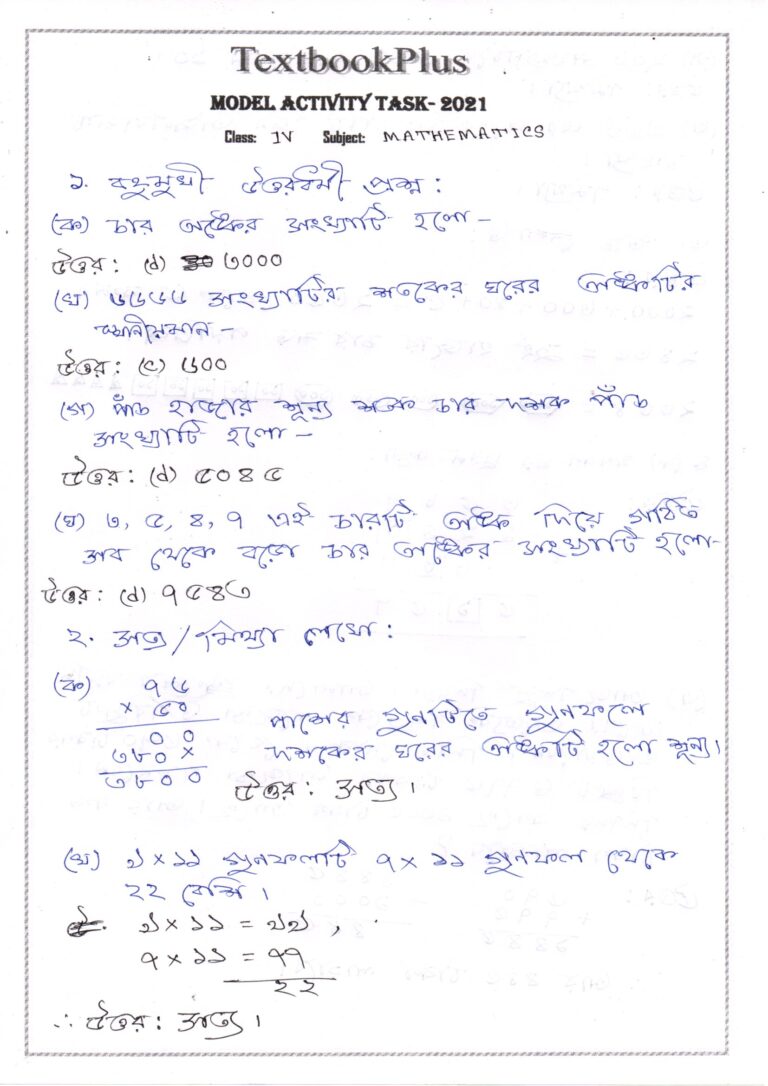 TextbookPlus
MODEL ACTIVITY TASK- 2021
Class: IV Subject: MATHEMATICS
১. বহুমুখী উত্তরধর্মী প্রশ্ন :
(ক) চার অঙ্কের সংখ্যাটি হলো -
উত্তর : (d) ৩০০০
(খ) ৬৬৬৬ সংখ্যাটির শতকের ঘরের অঙ্কটির
স্থানীয়মান -
উত্তর : (c) ৬০০
(গ) পাঁচ হাজার শূন্য শতক চার দশক পাঁচ
সংখ্যাটি হলো -
উত্তর : (d) ৫০৪৫
(ঘ) ৩, ৫, ৪, ৭ এই চারটি অঙ্ক দিয়ে গঠিত
সব থেকে বড়ো চার অঙ্কের সংখ্যাটি হলো-
উত্তর : (d) ৭৫৪৩
২. সত্য / মিথ্যা লেখো :
(ক) ৭৬
x ৫০
০০
৩৮০x
৩৮০০
পাশের গুনটিতে গুনফলে
দশকের ঘরের অঙ্কটি হলো শূন্য।
উত্তর : সত্য।
(খ) ৯ x ১১ গুনফলটি ৭ x ১১ গুনফল থেকে
২২ বেশি।
৯ x ১১ = ৯৯ ,
৭ x ১১ = ৭৭
২২
∴ উত্তর : সত্য।